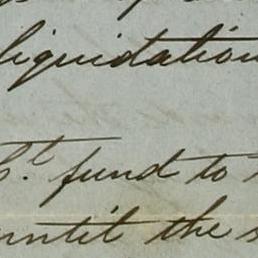 liquidation
Ct. fund to
until the s